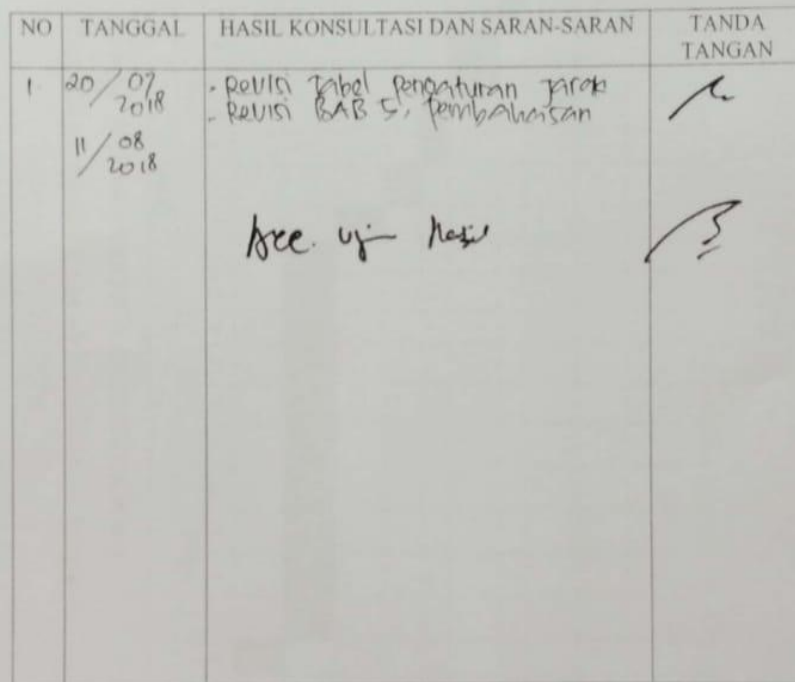 NO TANGGAL HASIL KONSULTASI DAN SARAN-SARAN TANDA TANGAN
1 20/07 2018 - Revisi Tabel Pengaturan Jarak
- Revisi BAB 5, Pembahasan
11/08 2018
Acc. uji hasil